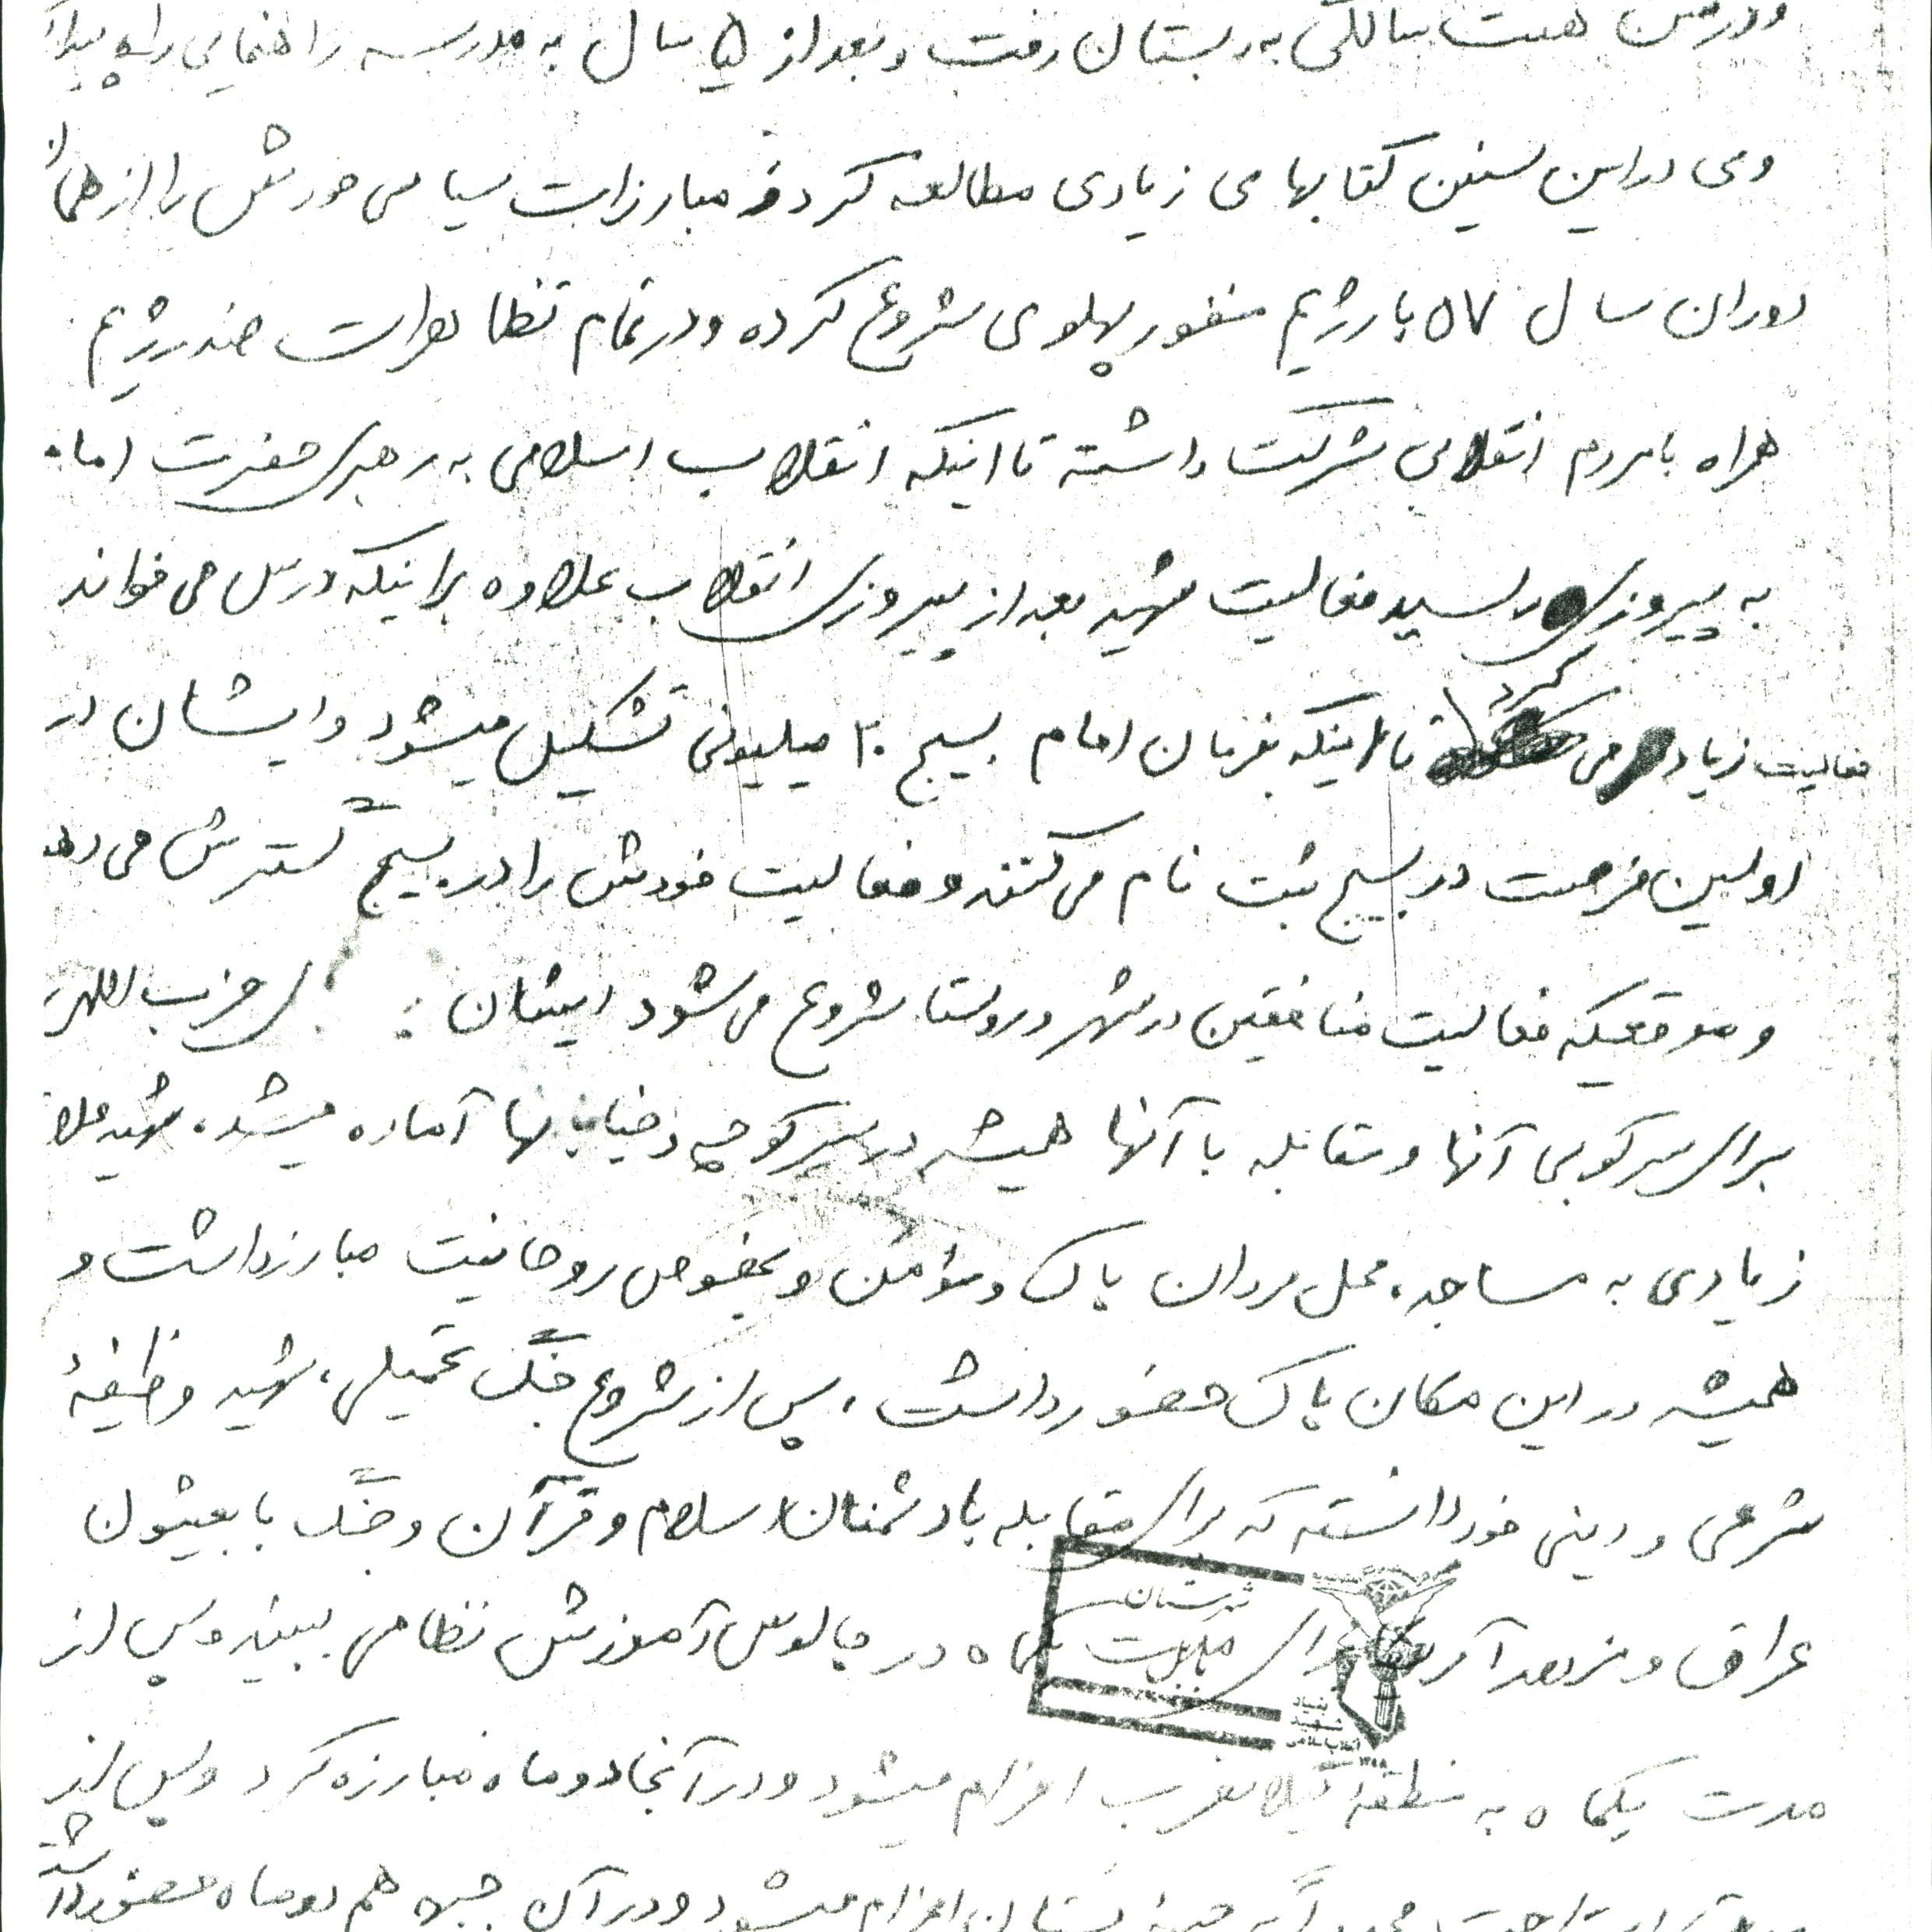 و در سن هفت سالگی به دبستان رفت و بعد از ۵ سال به مدرسه راهنمایی راه پیدا
وی در این سنین کتابهای زیادی مطالعه کرد و مبارزات سیاسی خودش را از همان
دوران سال ۵۷ با رژیم منفور پهلوی شروع کرده و در تمام تظاهرات ضد رژیم
همراه با مردم انقلابی شرکت داشته تا اینکه انقلاب اسلامی به رهبری حضرت امام
به پیروزی رسید فعالیت شهید بعد از پیروزی انقلاب علاوه بر اینکه درس می خواند
فعالیت زیاد می کرد تا اینکه بفرمان امام بسیج ۲۰ میلیونی تشکیل میشود و ایشان در
اولین فرصت در بسیج ثبت نام می کنند و فعالیت خودش را در بسیج گسترش می دهد
و موقعیکه فعالیت منافقین در شهر و روستا شروع می شود ایشان حزب اللهی
برای سرکوبی آنها و مقابله با آنها همیشه در سر کوچه و خیابانها آماده میشد، شهید علاقه
زیادی به مساجد، محل مردان پاک و مؤمن و بخصوص روحانیت مبارز داشت و
همیشه در این مکان پاک حضور داشت، پس از شروع جنگ تحمیلی، شهید وظیفهٔ
شرعی و دینی خود دانسته که برای مقابله با دشمنان اسلام و قرآن و جنگ با بعثیون
عراق و مزدور آمریکا برای یکماه در چالوس آموزش نظامی ببیند و پس از
شهرستان
بابلسر
بنیاد شهید انقلاب اسلامی
مدت یکماه به منطقهٔ گیلانغرب اعزام میشود و در آنجا دو ماه مبارزه کرد و پس از
مجدداً به جبههٔ بستان اعزام میشود و در آن جبهه هم دو ماه حضور داشت